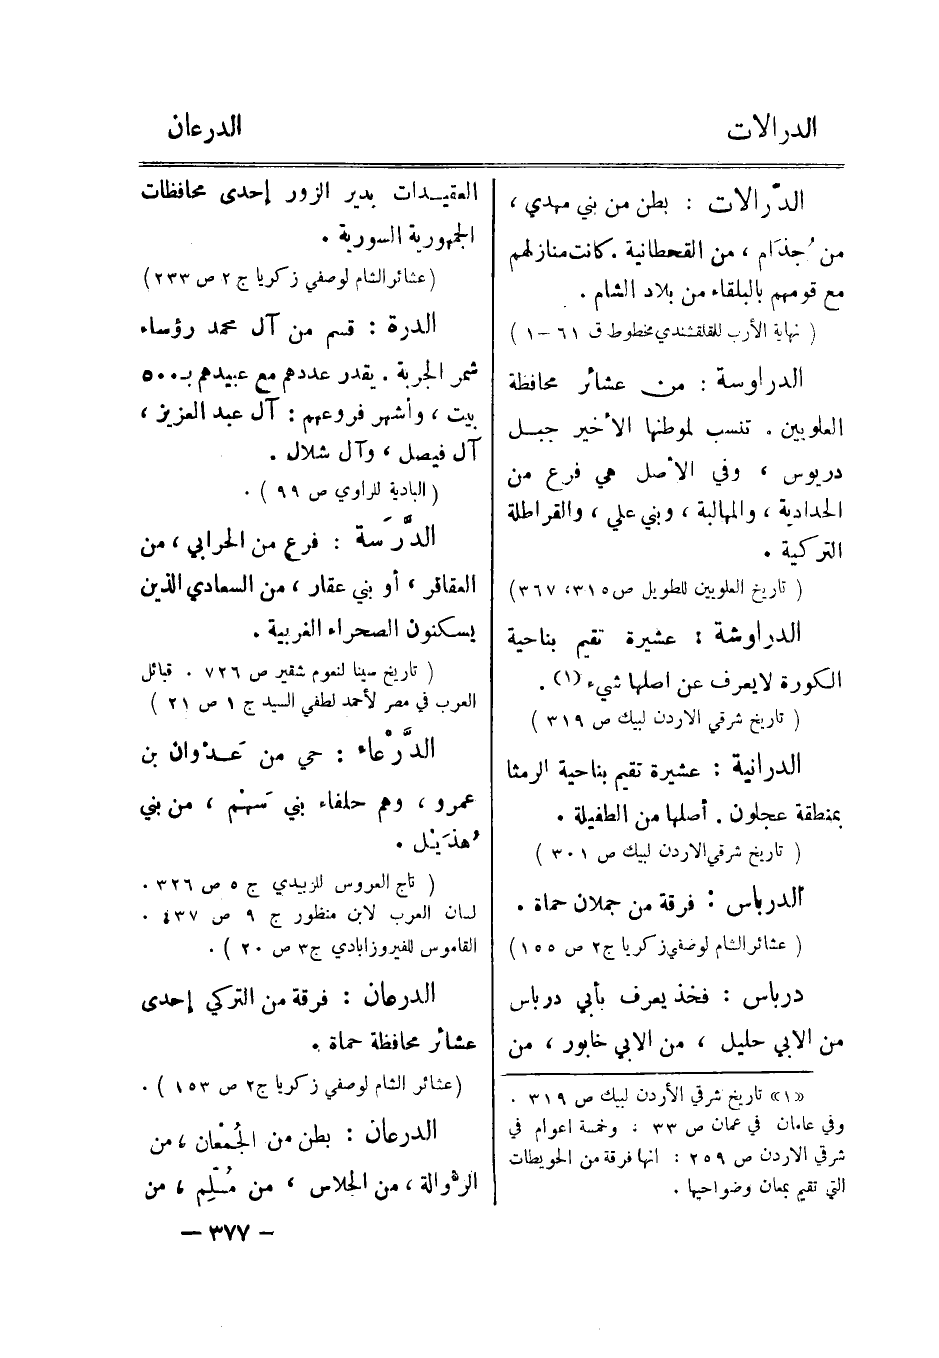 الدرالات
الدرعان
الدّرالات : بطن من بني مهدي ،
من جُذَام ، من القحطانية . كانت منازلهم
مع قومهم بالبلقاء من بلاد الشام .
( نهاية الأرب للقلقشندي مخطوط ق ٦١ – ١ )
الدراوسة : من عشائر محافظة
العلويين . تنسب لموطنها الأخير جبل
دريوس ، وفي الأصل هي فرع من
الحدادية ، والمهالبة ، وبني علي ، والقراطلة
التركية .
( تاريخ العلويين للطويل ص ٣١٥، ٣٦٧ )
الدراوشة : عشيرة تقيم بناحية
الكورة لا يعرف عن اصلها شيء (١) .
( تاريخ شرقي الاردن لبيك ص ٣١٩ )
الدرانية : عشيرة تقيم بناحية الرمثا
بمنطقة عجلون . أصلها من الطفيلة .
( تاريخ شرقي الاردن لبيك ص ٣٠١ )
الدرباس : فرقة من جملان حماة .
( عشائر الشام لوصفي زكريا ج٢ ص ١٥٥ )
درباس : فخذ يعرف بأبي درباس
من الابي حليل ، من الابي خابور ، من
«١» تاريخ شرقي الأردن لبيك ص ٣١٩ .
وفي عامان في عمان ص ٣٣ : وخمسة اعوام في
شرقي الاردن ص ٢٥٩ : انها فرقة من الحويطات
التي تقيم بمعان وضواحيها .
العقيدات بدير الزور إحدى محافظات
الجمهورية السورية .
( عشائر الشام لوصفي زكريا ج ٢ ص ٢٣٣ )
الدرة : قسم من آل محمد رؤساء
شمر الجربة . يقدر عددهم مع عبيدهم بـ ٥٠٠
بيت ، وأشهر فروعهم : آل عبد العزيز ،
آل فيصل ، وآل شلال .
( البادية للراوي ص ٩٩ ) .
الدَّرَسَة : فرع من الحرابي ، من
العقاقر ، أو بني عقار ، من السعادي الذين
يسكنون الصحراء الغربية .
( تاريخ سينا لنعوم شقير ص ٧٢٦ . قبائل
العرب في مصر لأحمد لطفي السيد ج ١ ص ٢١ )
الدَّرْعاء : حي من عَدْوان بن
عمرو ، وهم حلفاء بني سَهْم ، من بني
هُذَيْل .
( تاج العروس للزبيدي ج ٥ ص ٣٢٦ .
لسان العرب لابن منظور ج ٩ ص ٤٣٧ .
القاموس للفيروزابادي ج٣ ص ٢٠ ) .
الدرعان : فرقة من التركي إحدى
عشائر محافظة حماة .
( عشائر الشام لوصفي زكريا ج٢ ص ١٥٣ ) .
الدرعان : بطن من الجُمْعان ، من
الرّوالة ، من الجلاس ، من مُسْلِم ، من
– ٣٧٧ –